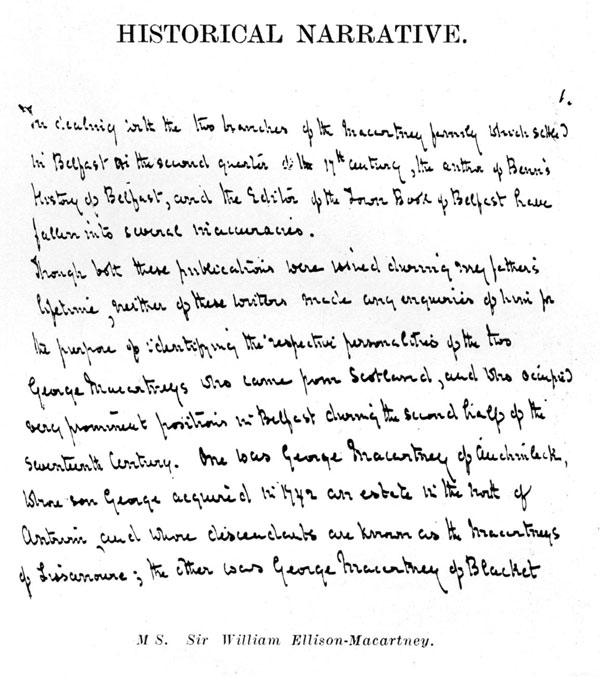 HISTORICAL NARRATIVE.
1.
In dealing with the two branches of the Macartney family which settled
in Belfast in the second quarter of the 17th century, the author of Benn's
History of Belfast, and the Editor of the Town Book of Belfast have
fallen into several inaccuracies.
Though both these publications were issued during my father's
lifetime, neither of these writers made any enquiries of him for
the purpose of identifying the respective personalities of the two
George Macartneys who came from Scotland, and who occupied
very prominent positions in Belfast during the second half of the
seventeenth Century. One was George Macartney of Auchinleck,
whose son George acquired in 1742 an estate in the North of
Antrim, and whose descendants are known as the Macartneys
of Lissanoure; the other was George Macartney of Blacket
MS. Sir William Ellison-Macartney.